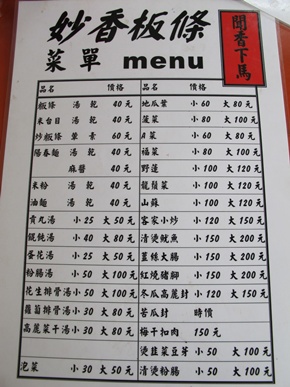 妙香板條
聞香下馬
菜單 menu
品名 價格 品名 價格
粄條 湯 乾 40 元 地瓜葉 小 60 大 80 元
米台目 湯 乾 40 元 菠菜 小 80 大 100 元
炒粄條 葷 素 60 元 A菜 小 60 大 80 元
陽春麵 湯 乾 40 元 福菜 小 80 大 100 元
麻醬 40 元 野蓮 小 100 大 120 元
米粉 湯 乾 40 元 龍鬚菜 小 100 大 120 元
油麵 湯 乾 40 元 山蘇 小 100 大 120 元
貢丸湯 小 25 大 50 元 客家小炒 小 120 大 150 元
餛飩湯 小 40 大 80 元 清燙魷魚 小 150 大 200 元
蛋花湯 小 25 大 50 元 薑絲大腸 小 150 大 200 元
粉腸湯 小 50 大 100 元 紅燒豬腳 小 150 大 200 元
花生排骨湯 小 50 大 100 元 冬瓜高麗封 小 100 大 150 元
蘿蔔排骨湯 小 30 大 80 元 苦瓜封 時價
高麗菜干湯 小 30 大 80 元 梅干扣肉 150 元
燙韭菜豆芽 小 50 大 100 元
泡菜 小 30 大 50 元 清燙粉腸 小 50 大 100 元